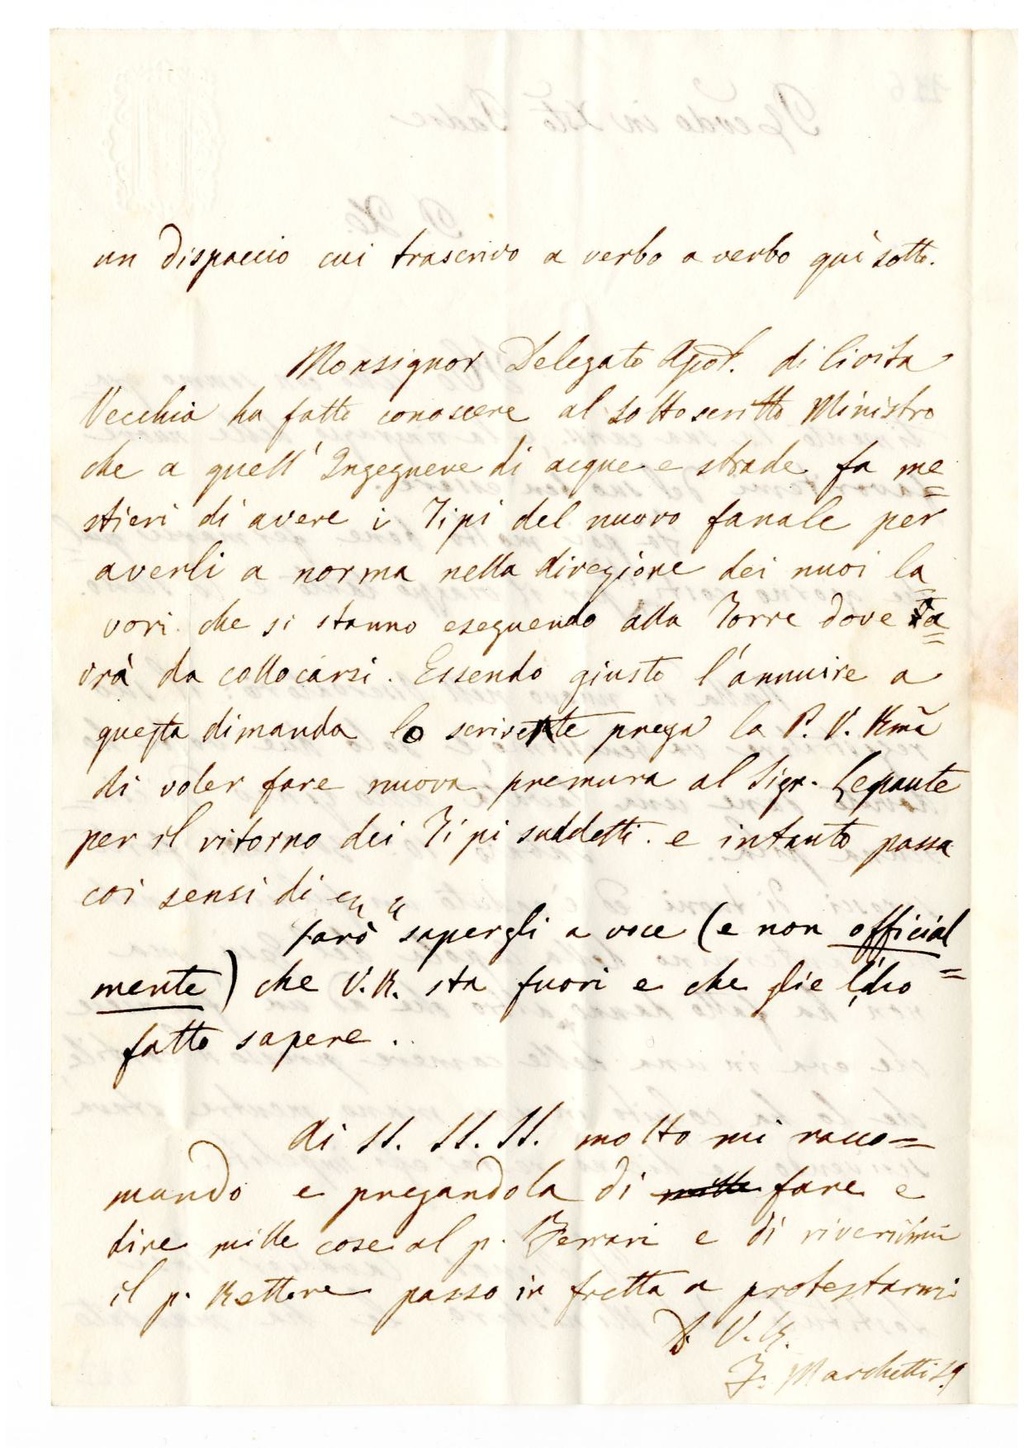 un dispaccio cui trascrivo a verbo a verbo qui sotto.
Monsignor Delegato Apost. di Civita
Vecchia ha fatto conoscere al sottoscritto Ministro
che a quell' Ingegnere di acque e strade fa me=
stieri di avere i Tipi del nuovo fanale per
averli a norma nella direzione dei nuoi la=
vori che si stanno eseguendo alla Torre dove
vrà da collocarsi. Essendo giusto l'annuire a
questa dimanda lo scrivente prega la P. V. Rma
di voler fare nuova premura al Sigr. Lepaute
per il ritorno dei Tipi suddetti. e intanto passa
coi sensi di
Farò sapergli a voce (e non official=
mente) che V. R. sta fuori e che glie l'ho
fatto sapere.
Ai SS. SS. SS. molto mi racco=
mando e pregandola di fare e
dire mille cose al p. Ferrari e di riverirmi
il p. Rettore passo in fretta a protestarmi
D. V. R.
F. Marchetti